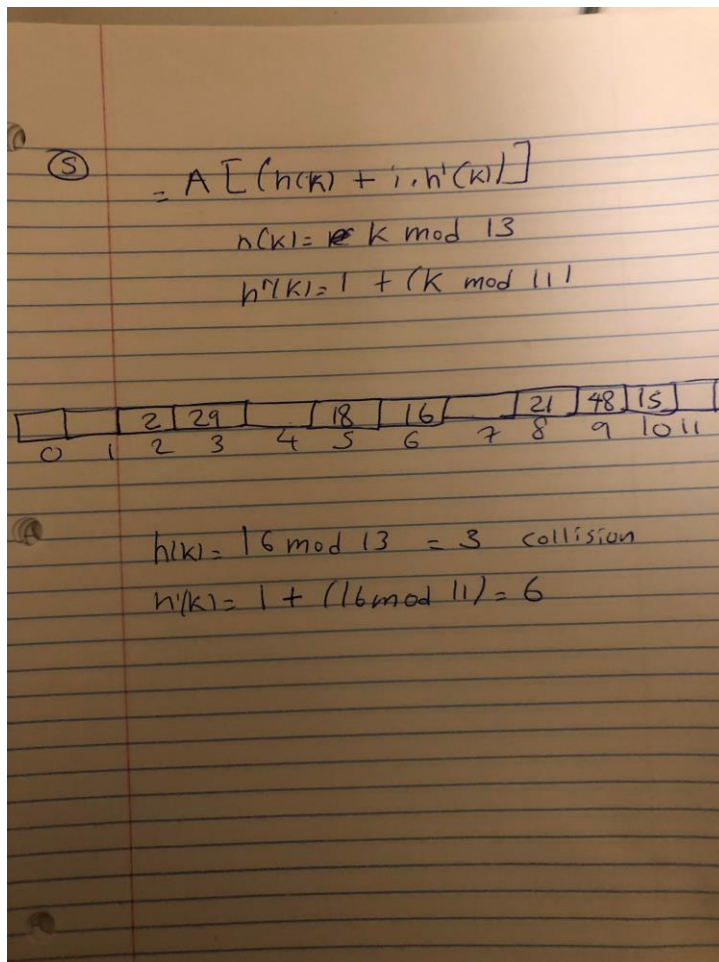 (5)
= A [(h(k) + i.h'(k)]
h(k)= k mod 13
h"(k)= 1 + (k mod 11)
2 29 18 16 21 48 15
0 1 2 3 4 5 6 7 8 9 10 11
h(k)= 16 mod 13 = 3 collision
h'(k)= 1 + (16 mod 11) = 6